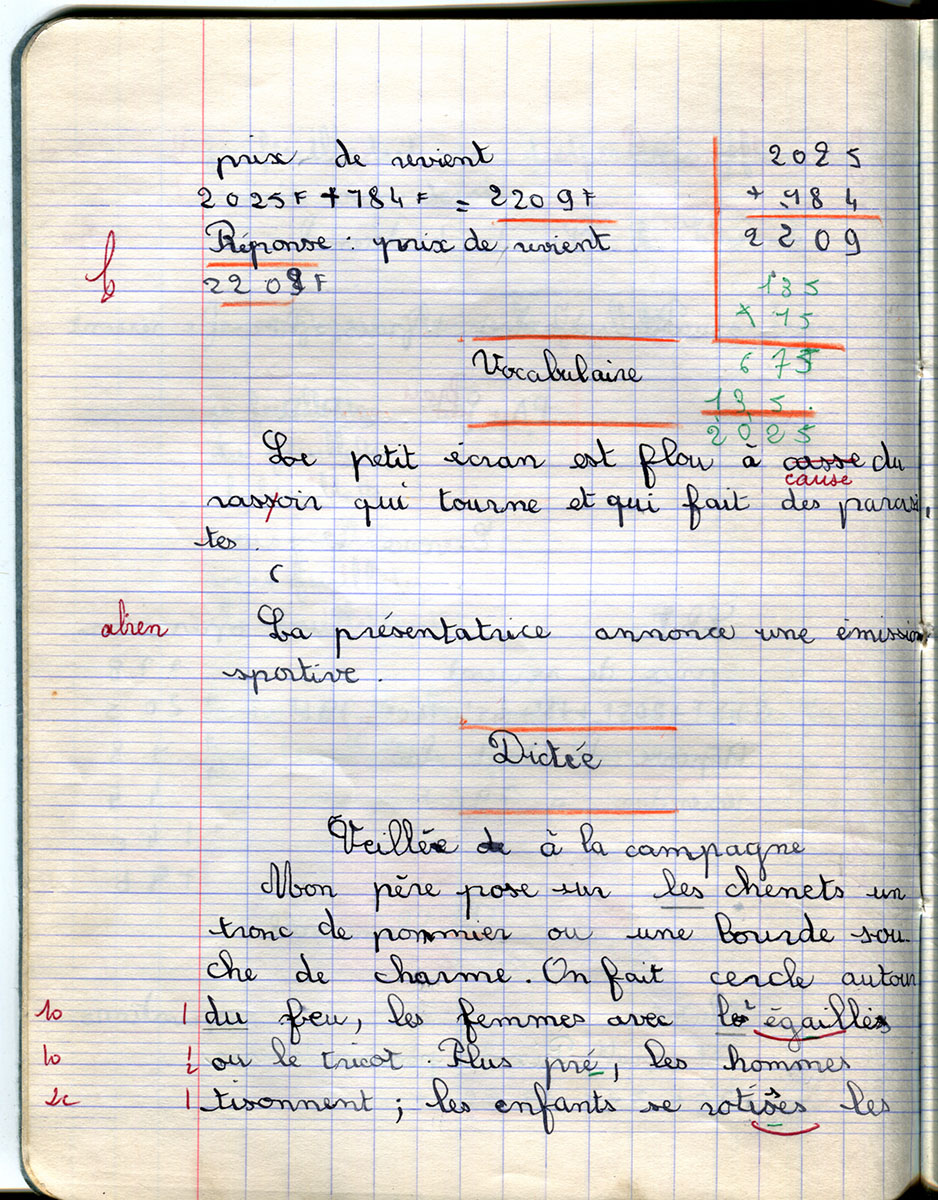 prix de revient
2025F + 784F = 2209F
Réponse : prix de revient
2209F
2025
+ 184
2209
135
× 15
675
135.
2025
Vocabulaire
Le petit écran est flou à casse du
cause
rassoir qui tourne et qui fait des parasi,
tes.
C
La présentatrice annonce une émission
sportive.
Dictée
Veillée de à la campagne
Mon père pose sur les chenets un
tronc de pommier ou une lourde sou-
che de charme. On fait cercle autour
10 1 du feu, les femmes avec égailles
10 1/2 ou le tricot. Plus pré, les hommes
1 tisonnent ; les enfants se rotises les